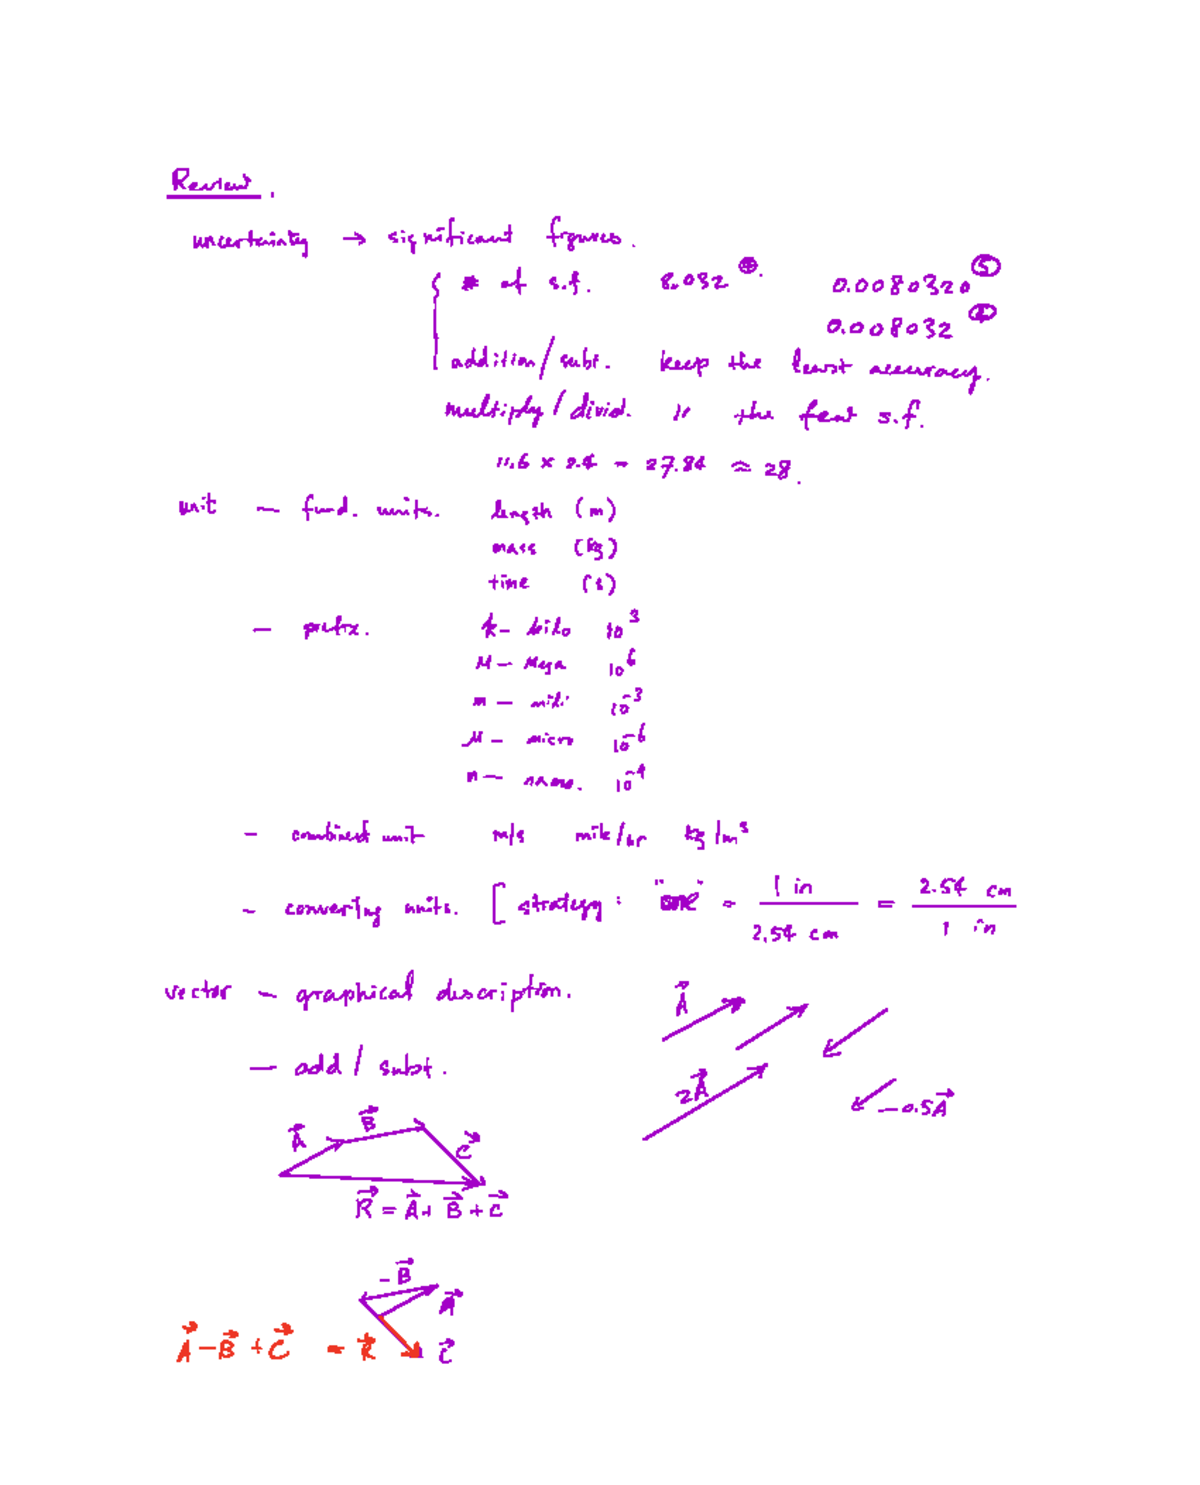 Review.
uncertainty → significant figures.
# of s.f. 8.032 ④. 0.0080320 ⑤
0.008032 ④
addition/subt. keep the least accuracy.
multiply/divid. 〃 the s.f.
11.6 × 2.4 = 27.84 ≈ 28.
unit – fund. units. length (m)
mass (kg)
time (s)
– prefix. k – kilo 10³
M – Mega 10⁶
m – mili 10⁻³
μ – micro 10⁻⁶
n – nano. 10⁻⁹
– combined unit m/s mile/hr kg/m³
– converting units. [ strategy : "one" = 1 in / 2.54 cm = 2.54 cm / 1 in
vector – graphical description. A⃗
– add / subt. 2A⃗ –0.5A⃗
A⃗ B⃗ C⃗
R⃗ = A⃗ + B⃗ + C⃗
–B⃗ A⃗
A⃗ – B⃗ + C⃗ = R⃗ C⃗